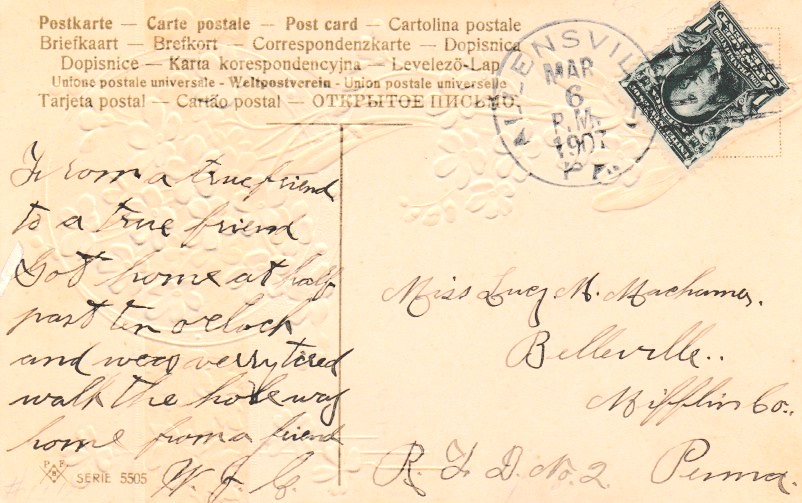 Postkarte — Carte postale — Post card — Cartolina postale
Briefkaart — Brefkort — Correspondenzkarte — Dopisnica
Dopisnice — Karta korespondencyjna — Levelező-Lap
Unione postale universale - Weltpostverein - Union postale universelle
Tarjeta postal — Cartão postal — ОТКРЫТОЕ ПИСЬМО.
ALLENSVILLE
MAR
6
P.M.
1907
PA.
From a true friend
to a true friend
Got home at half
past ten oclock
and was verry tired
walk the hole way
home from a friend
W. J. C.
Miss Lucy M. Machamer.
Belleville..
Mifflin Co.
R. F. D. No. 2 Penna.
SERIE 5505